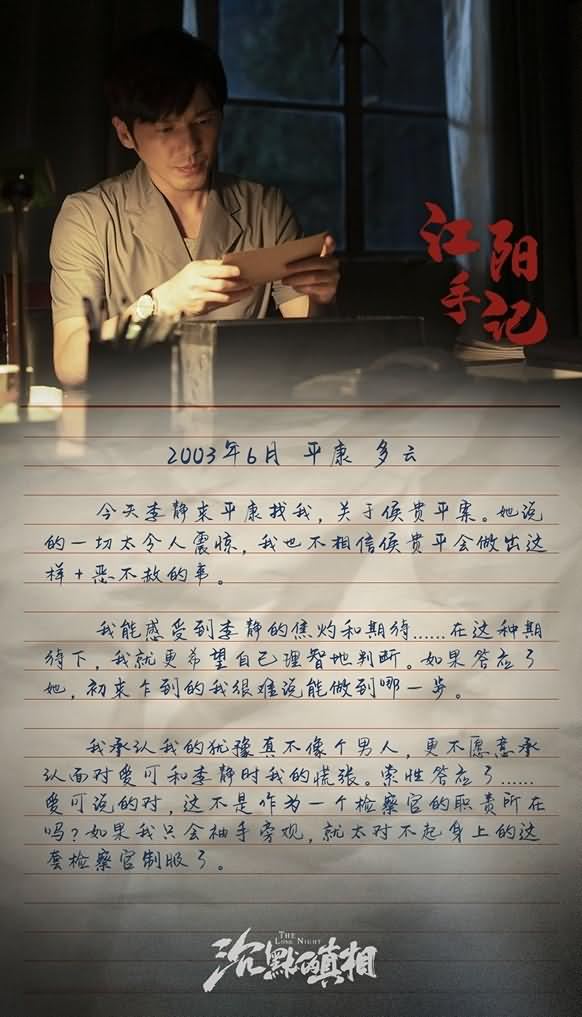 江阳
手记
2003年6月 平康 多云
今天李静来平康找我,关于侯贵平案。她说
的一切太令人震惊,我也不相信侯贵平会做出这
样十恶不赦的事。
我能感受到李静的焦灼和期待……在这种期
待下,我就更希望自己理智地判断。如果答应了
她,初来乍到的我很难说能做到哪一步。
我承认我的犹豫真不像个男人,更不愿意承
认面对爱可和李静时我的慌张。索性答应了……
爱可说的对,这不是作为一个检察官的职责所在
吗?如果我只会袖手旁观,就太对不起身上的这
套检察官制服了。
THE
LONG NIGHT
沉默的真相